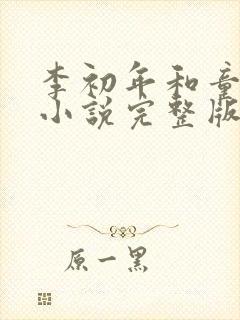 李初年和童
小说完整版
原一黑